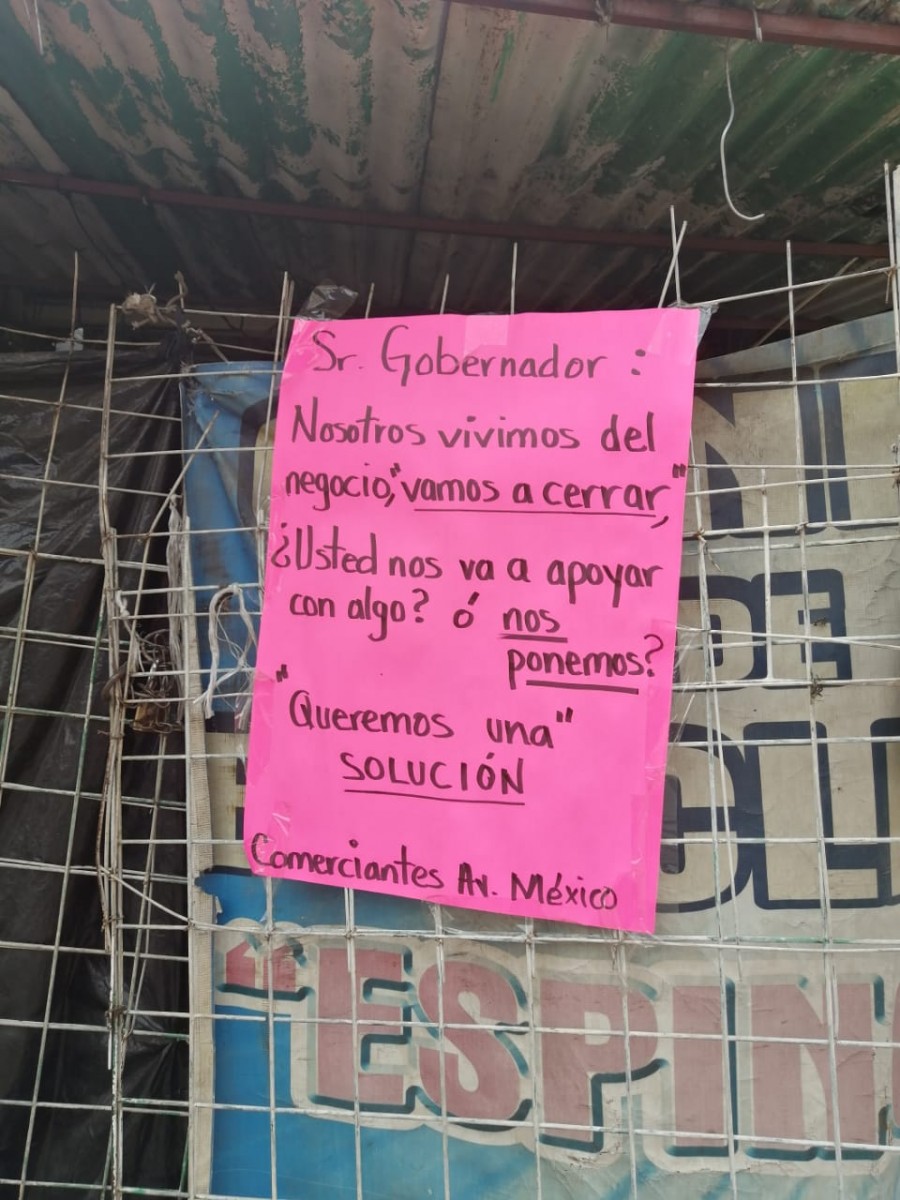 Sr. Gobernador :
Nosotros vivimos del
negocio, "vamos a cerrar,"
¿Usted nos va a apoyar
con algo? ó nos
ponemos?
"Queremos una"
SOLUCIÓN
Comerciantes Av. México
DE
"ESPIN